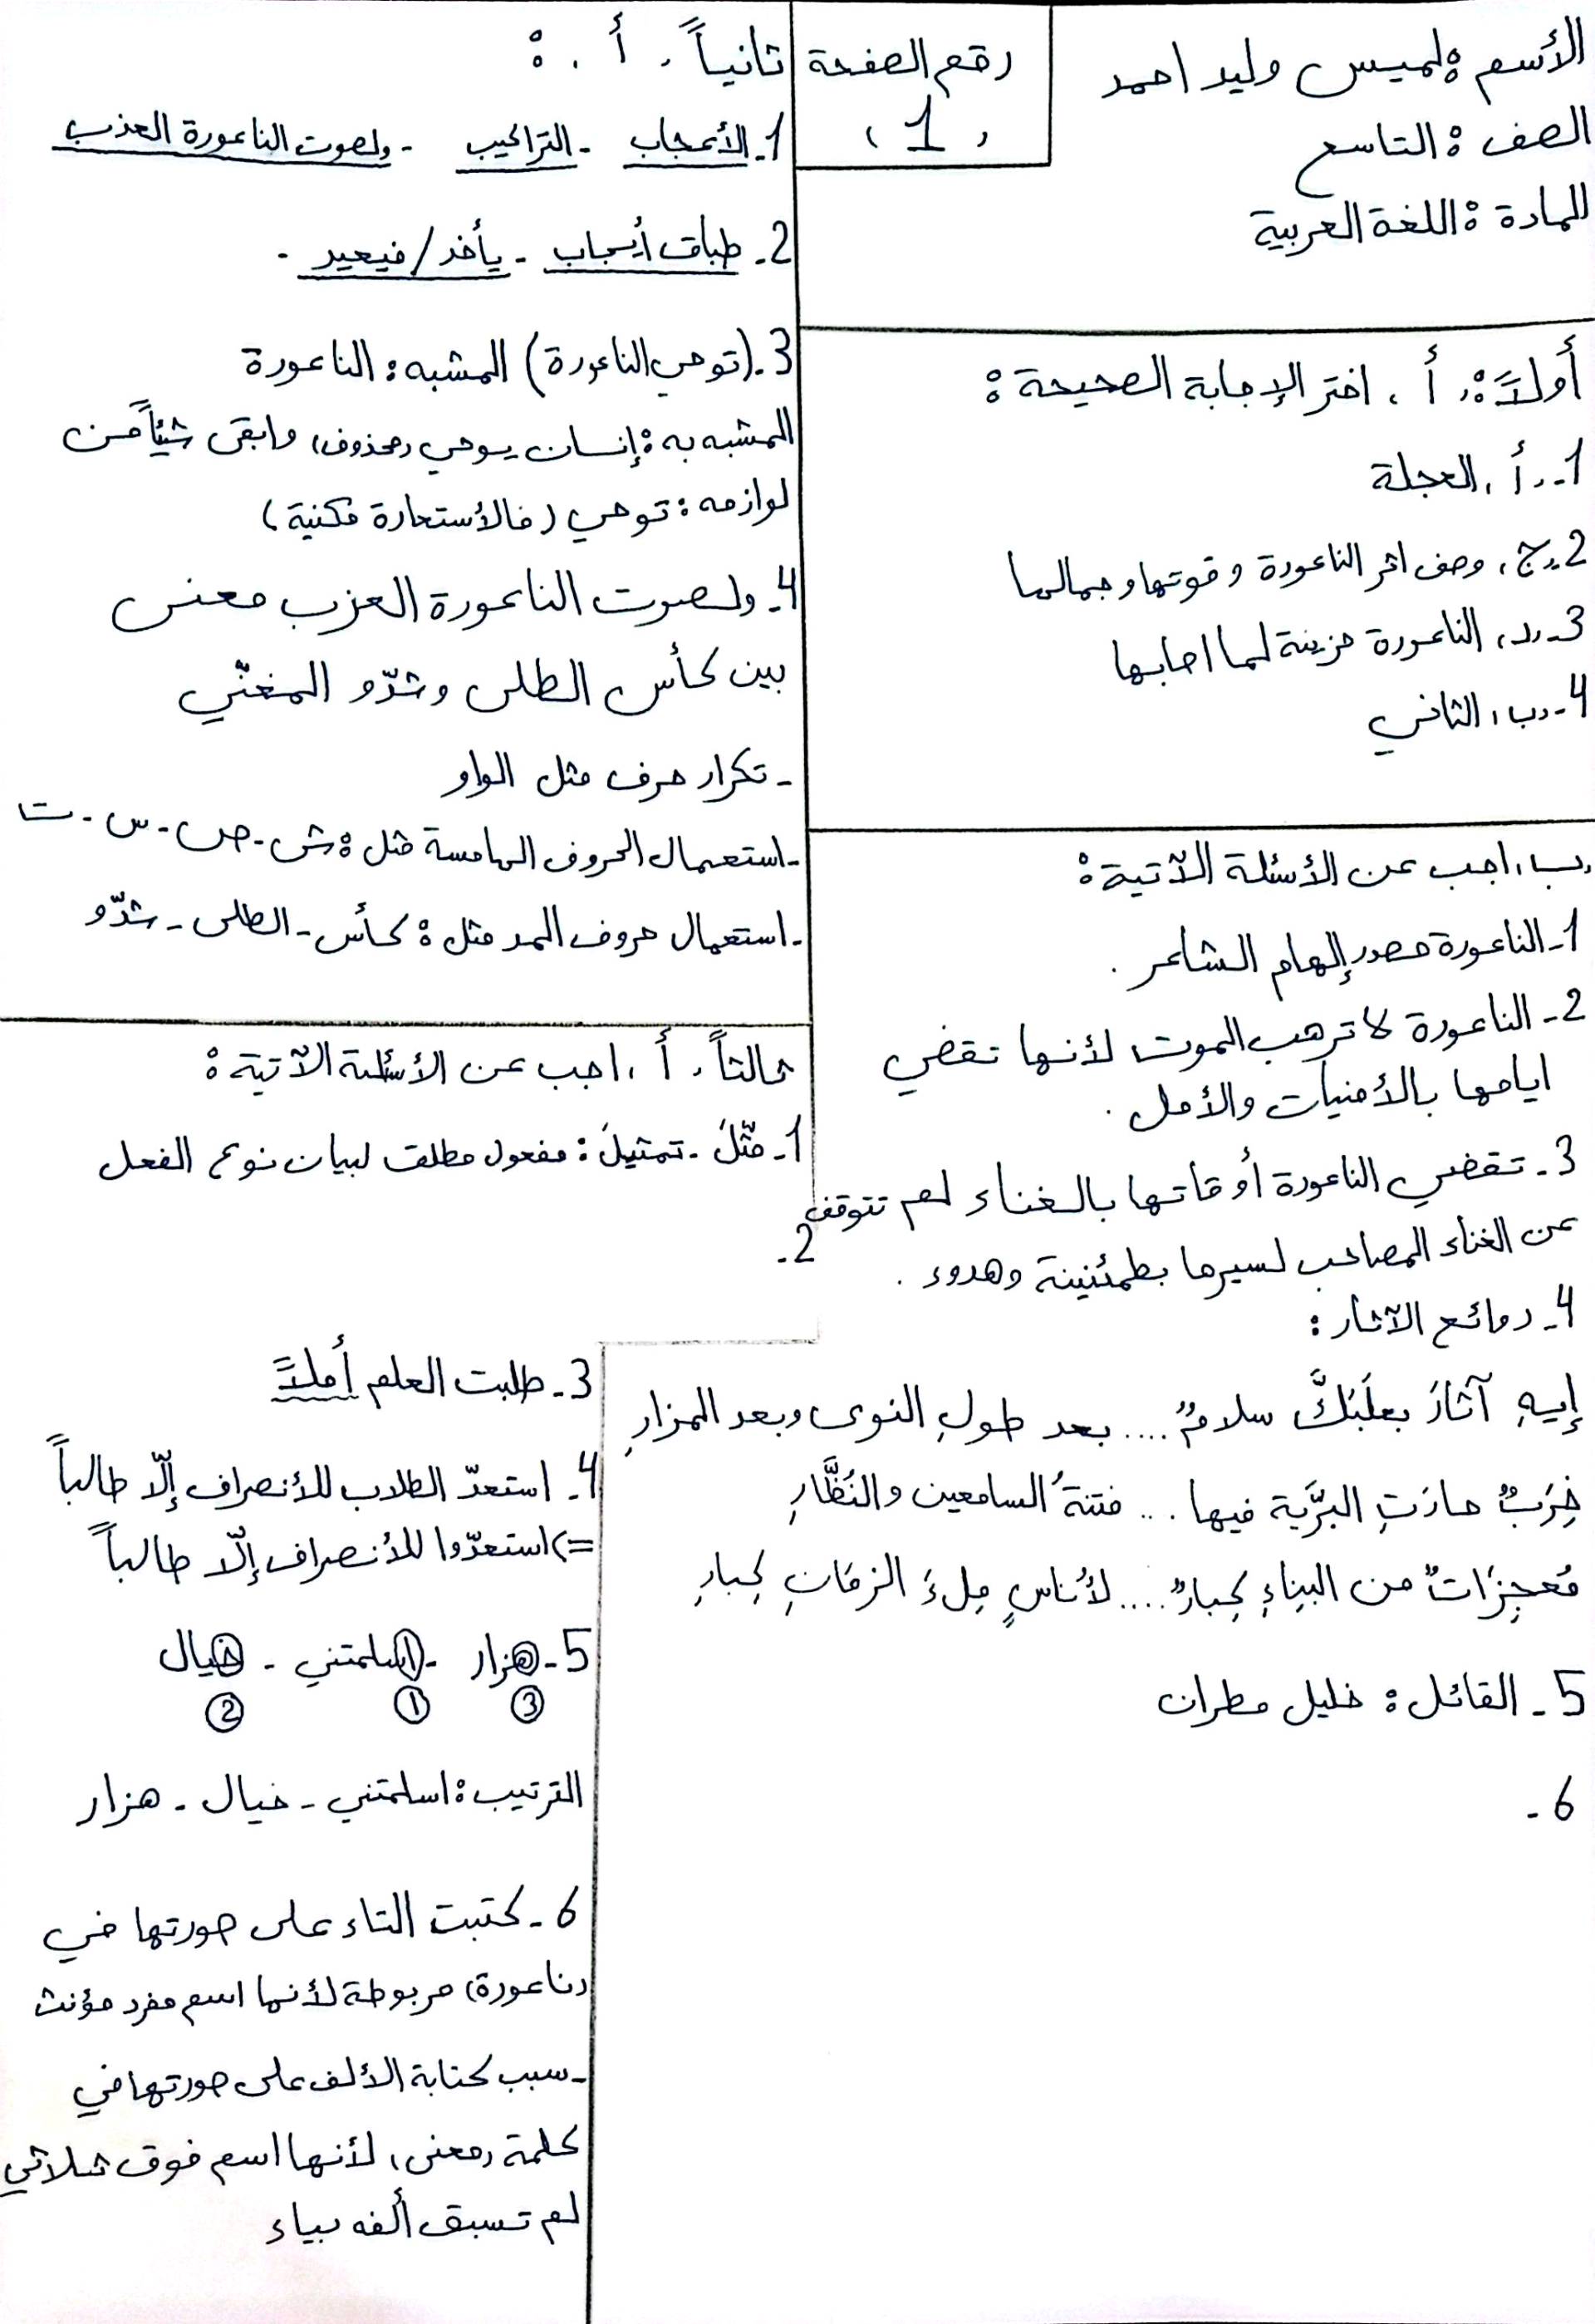 الأسم : لميس وليد احمد
الصف : التاسع
المادة : اللغة العربية
رقم الصفحة
(1)
أولاً : أ. اختر الإجابة الصحيحة :
1- (أ) العجلة
2- (ج) وصف اثر الناعورة وقوتها وجمالها
3- (د) الناعورة حزينة لما اصابها
4- (ب) الثاني
(ب) اجب عن الأسئلة الآتية :
1- الناعورة مصدر إلهام الشاعر .
2- الناعورة لا ترهب الموت لأنها تقضي
ايامها بالأمنيات والأمل .
3- تقضي الناعورة أوقاتها بالغناء لم تتوقف
عن الغناء المصاحب لسيرها بطمئنينة وهدوء .
4- روائع الآثار :
إيهِ آثارَ بعلَبَكَّ سلامٌ .... بعد طولِ النوى وبعد المزارِ
خِرَبٌ حارَتِ البرَّية فيها ... فتنةُ السامعين والنُظَّارِ
مُعجِزَاتٌ من البِناءِ كِبارٌ .... لأُناسٍ مِلءَ الزمَانِ كِبارِ
5- القائل : خليل مطران
6-
ثانياً . أ . :
1- الأعجاب - التراكيب - ولصوت الناعورة العذب
2- طباق أيجاب - يأخذ / فيعيد .
3- (توحي الناعورة) المشبه : الناعورة
المشبه به : إنسان يوحي (محذوف) وابقى شيئاً من
لوازمه : توحي (فالأستعارة مكنية)
4- ولصوت الناعورة العزب معنى
بين كأس الطلى وشدّو المغنّي
- تكرار حرف مثل الواو
- استعمال الحروف الهامسة مثل : ش - ص - س - ت
- استعمال حروف المد مثل : كأس - الطلى - شدّو
ثالثاً . أ . اجب عن الأسئلة الآتية :
1- مثّلَ - تمثيلَ : مفعول مطلق لبيان نوع الفعل
2-
3- طلبت العلم أملاً
4- استعدّ الطلاب للأنصراف إلّا طالباً
=> استعدّوا للأنصراف إلّا طالباً
5- هزار - اسلمتني - خيال
3 1 2
الترتيب : اسلمتني - خيال - هزار
6- كتبت التاء على صورتها في
(ناعورة) مربوطة لأنها اسم مفرد مؤنث
- سبب كتابة الألف على صورتها في
كلمة (معنى) لأنها اسم فوق ثلاثي
لم تسبق ألفه بياء